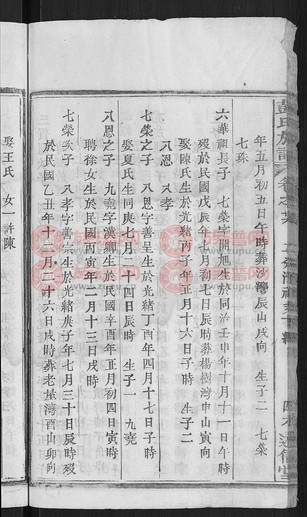 彭氏族譜
年五月初五日午時葬沙灣辰山戌向 生子二 七榮
七珠
六華祖長子 七榮字開旭生於同治壬申年十月十一日午時
歿於民國戊辰年八月初七日辰時葬楊樹灣申山寅向
娶陳氏生於光緒丙子年 月十六日子時 生子二
八恩 八孝
七榮之子 八恩字善呈生於光緒丁酉年四月十七日子時
娶夏氏生同庚七月二十四日酉時 生子一 九堯
八恩之子 九堯字漢卿生於民國辛酉年正月初四日寅時
聘徐女生於民國丙寅年二月十三日戌時
七榮次子 八孝字善宗生於光緒庚子年七月三十日辰時歿
於民國乙丑年十二月二十六日戌時葬老屋灣酉山卯向
娶王氏 女一許陳